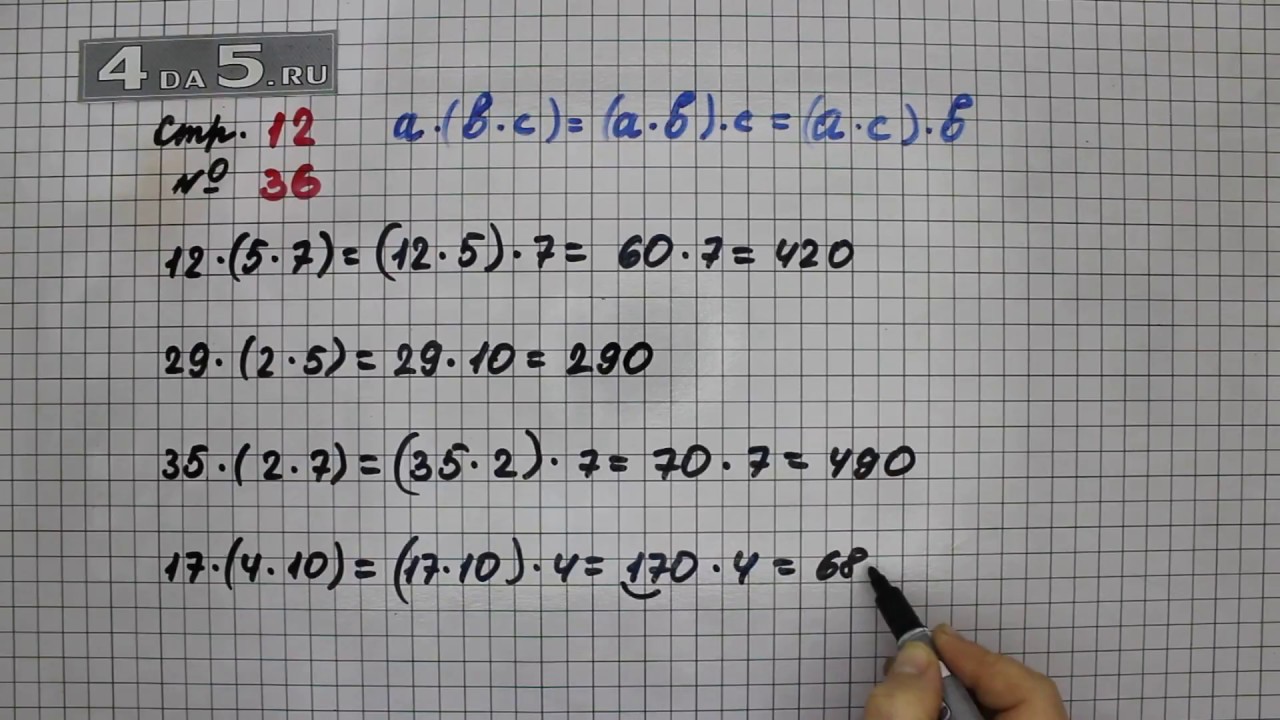 4DA5.RU
стр. 12 a·(в·c)=(a·в)·c=(a·c)·в
№ 36
12·(5·7)=(12·5)·7= 60·7=420
29·(2·5)=29·10=290
35·(2·7)=(35·2)·7=70·7=490
17·(4·10)=(17·10)·4=170·4=68